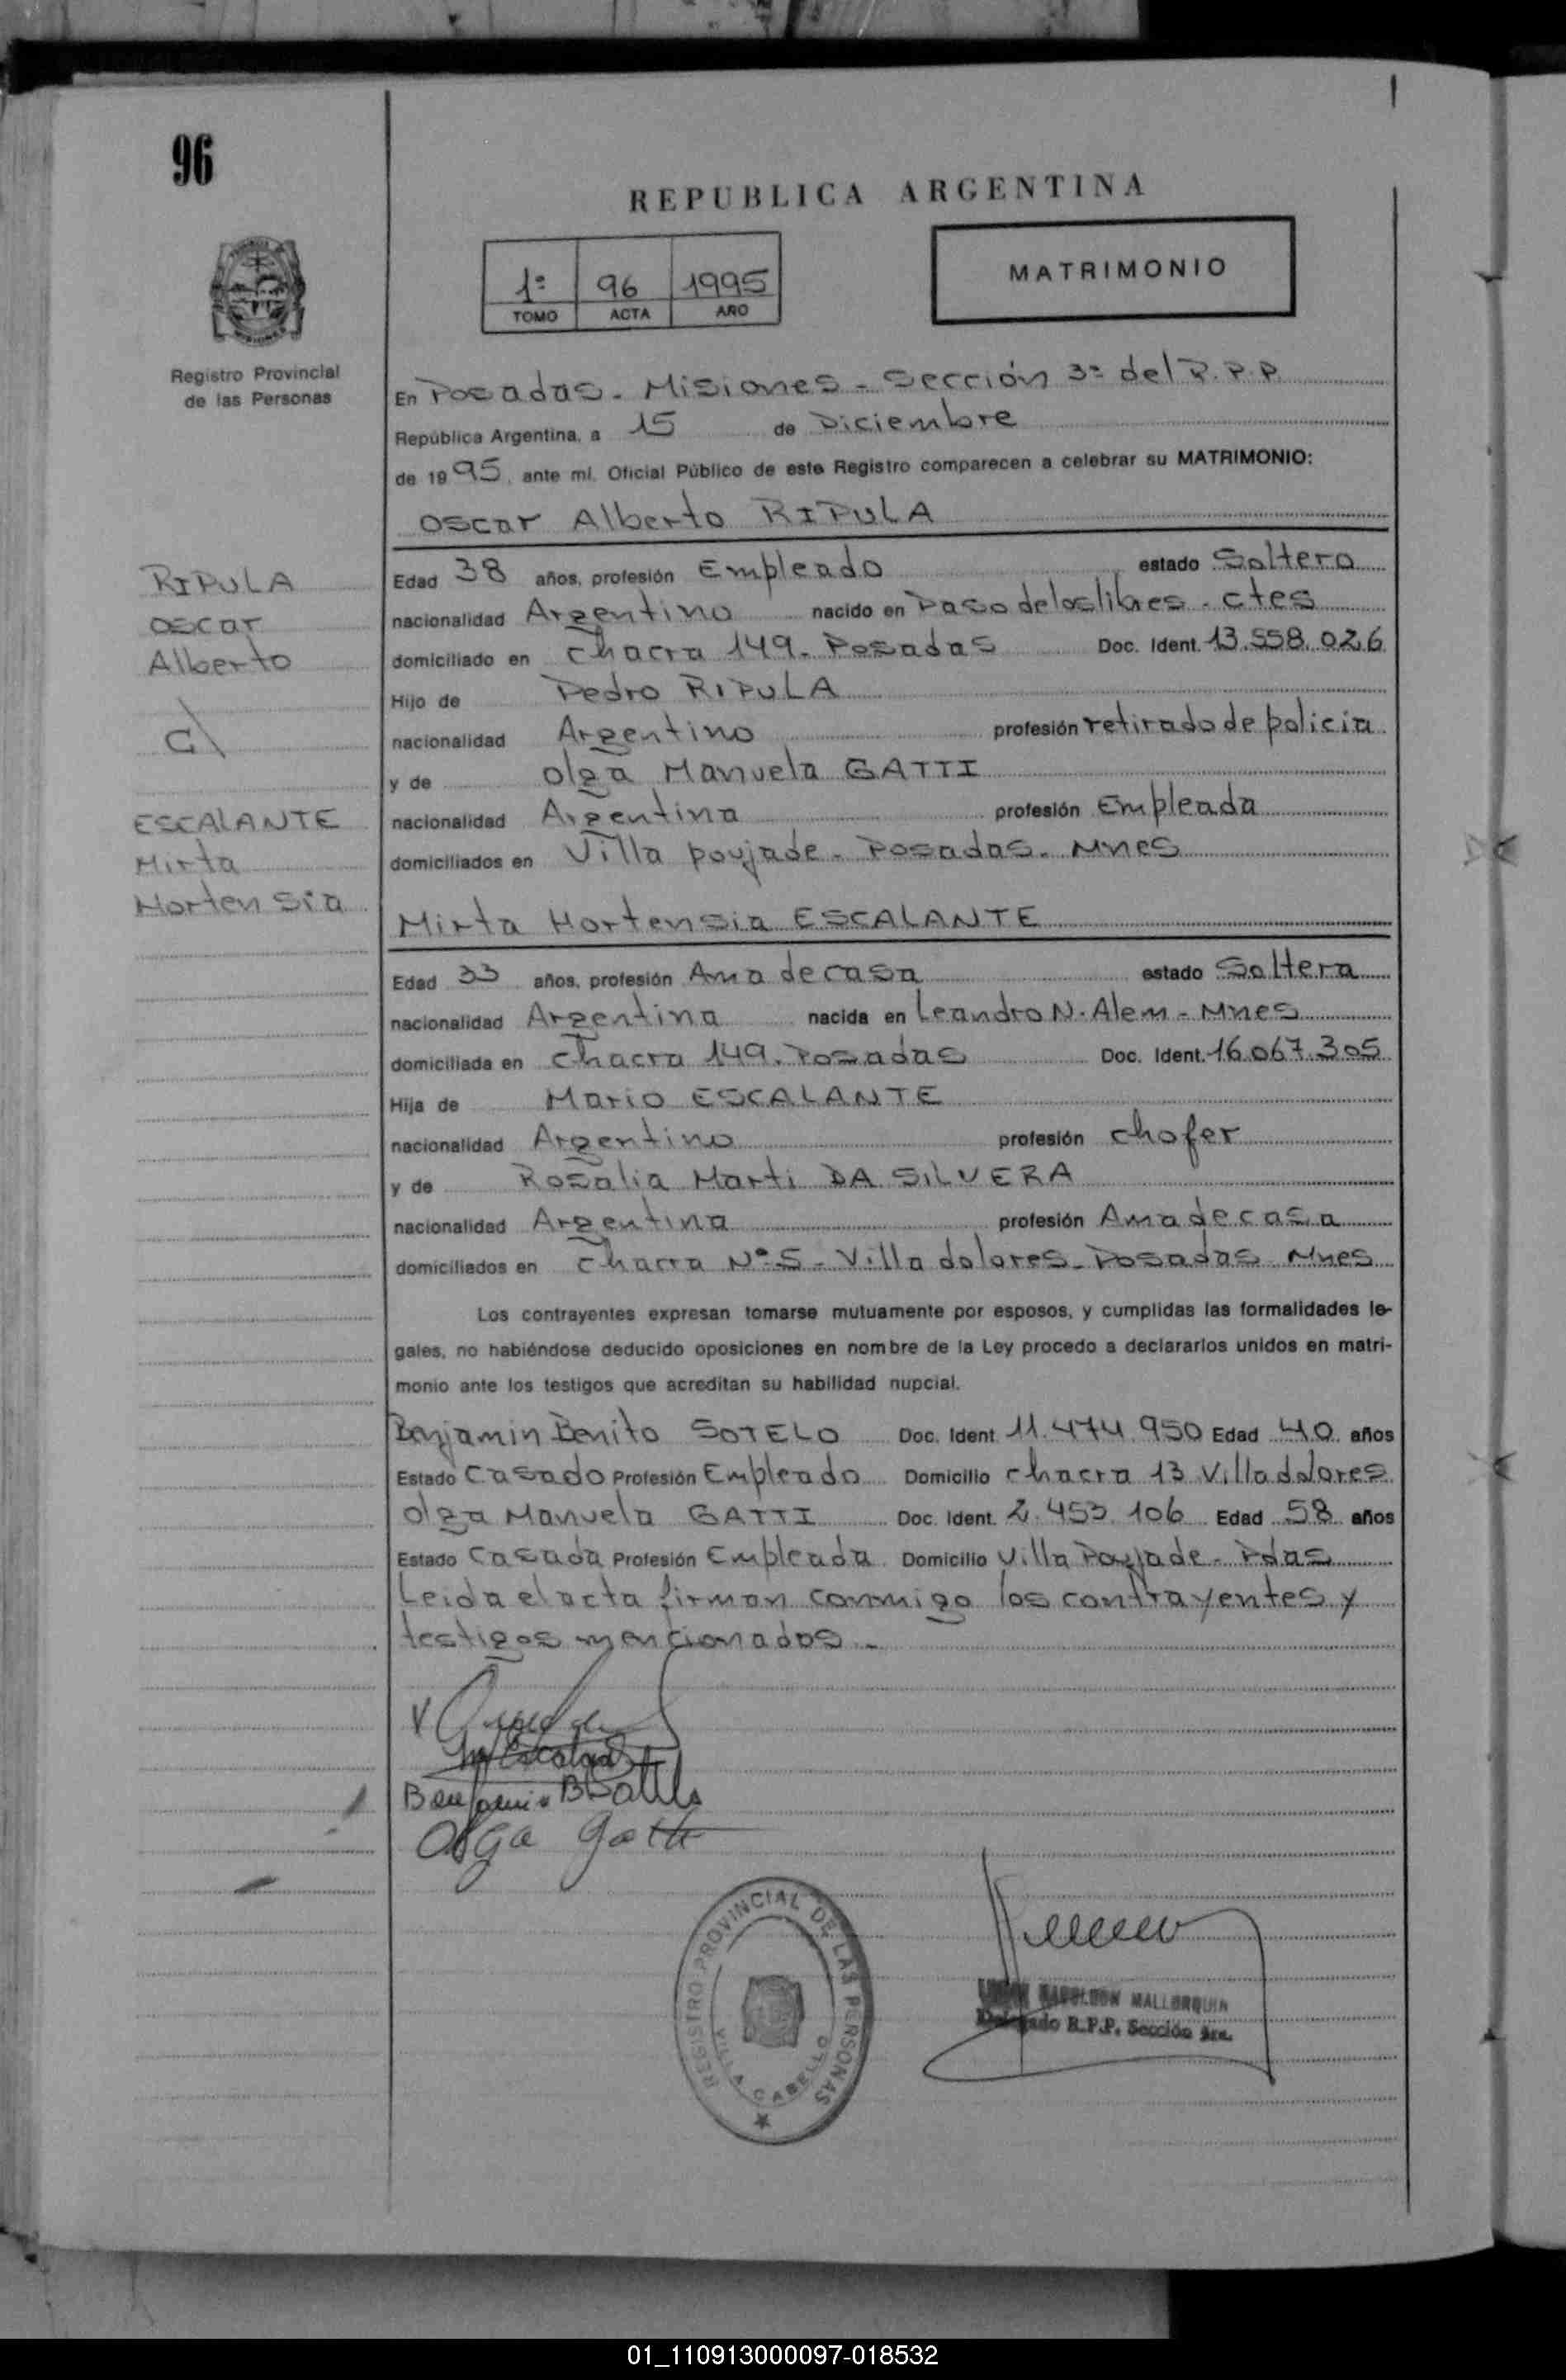 96
REPUBLICA ARGENTINA
1º 96 1995
TOMO ACTA AÑO
MATRIMONIO
Registro Provincial
de las Personas
En Posadas. Misiones - Sección 3º del R.P.P.
República Argentina, a 15 de Diciembre
de 1995, ante mí, Oficial Público de este Registro comparecen a celebrar su MATRIMONIO:
Oscar Alberto RIPULA
RIPULA
Oscar
Alberto
C/
ESCALANTE
Mirta
Hortensia
Edad 38 años, profesión Empleado estado Soltero
nacionalidad Argentino nacido en Paso de los libres. ctes
domiciliado en Chacra 149. Posadas Doc. Ident. 13.558.026
Hijo de Pedro RIPULA
nacionalidad Argentino profesión retirado de policia
y de Olga Manuela GATTI
nacionalidad Argentina profesión Empleada
domiciliados en Villa poujade. Posadas. Mnes
Mirta Hortensia ESCALANTE
Edad 33 años, profesión Ama de casa estado Soltera
nacionalidad Argentina nacida en Leandro N. Alem - Mnes
domiciliada en Chacra 149. Posadas Doc. Ident. 16.067.305
Hija de Mario ESCALANTE
nacionalidad Argentino profesión chofer
y de Rosalia Marti DA SILVERA
nacionalidad Argentina profesión Ama de casa
domiciliados en Chacra Nº 5 - Villa dolores - Posadas Mnes
Los contrayentes expresan tomarse mutuamente por esposos, y cumplidas las formalidades le-
gales, no habiéndose deducido oposiciones en nombre de la Ley procedo a declararlos unidos en matri-
monio ante los testigos que acreditan su habilidad nupcial.
Benjamin Benito SOTELO Doc. Ident. 11.474.950 Edad 40 años
Estado Casado Profesión Empleado Domicilio chacra 13 Villa dolores
Olga Manuela GATTI Doc. Ident. 2.453.106 Edad 58 años
Estado Casada Profesión Empleada Domicilio Villa Poujade - Pdas
Leida el acta firman conmigo los contrayentes y
testigos mencionados.-
Benjamin B
Olga Gatti
REGISTRO PROVINCIAL DE LAS PERSONAS
VILLA CABELLO
NAPOLEON MALLORQUIN
Delegado R.P.P. Sección 3ra.
01_110913000097-018532